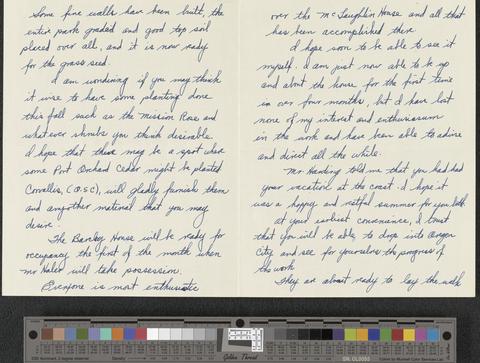 Some fine walls have been built, the
entire park graded and good top soil
placed over all, and it is now ready
for the grass seed.
I am wondering if you may think
it wise to have some planting done
this fall such as the Mission Rose and
whatever shrubs you think desirable.
I hope that there may be a spot where
some Port Orchard Cedar might be planted
Corvallis, (O.S.C), will gladly furnish them
and any other material that you may
desire.
The Barclay House will be ready for
occupancy the first of the month when
Mr Hales will take possession.
Everyone is most enthusiastic
over the McLoughlin House and all that
has been accomplished there
I hope soon to be able to see it
myself. I am just now able to be up
and about the house for the first time
in over four months, but I have lost
none of my interest and enthusiasm
in the work and have been able to advise
and direct all the while.
Mr. Harding told me that you had had
your vacation at the coast. I hope it
was a happy and restful summer for you both
At your earliest convenience, I trust
that you will be able to drop into Oregon
City and see for yourselves the progress of
the work
They are about ready to lay the walk
Golden Thread